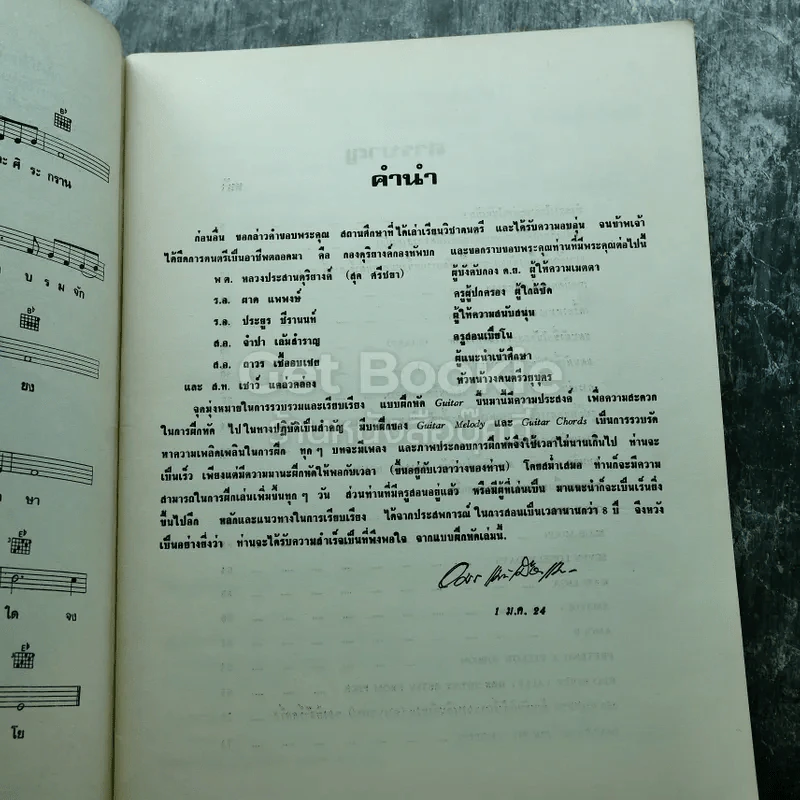 ะ ศิ ระ กราน
บ ร ม จัก
ยง
ษา
ใด จง
โย
คำนำ
ก่อนอื่น ขอกล่าวคำขอบพระคุณ สถานศึกษาที่ได้เล่าเรียนวิชาดนตรี และได้รับความอบอุ่น จนข้าพเจ้า
ได้ยึดการดนตรีเป็นอาชีพตลอดมา คือ กองดุริยางค์กองทัพบก และขอกราบขอบพระคุณท่านที่มีพระคุณต่อไปนี้
พ.ต. หลวงประสานดุริยางค์ (สุด ศรีชยา) ผู้บังคับกอง ด.ย. ผู้ให้ความเมตตา
ร.อ. ผาด แพพงษ์ ครูผู้ปกครอง ผู้ใกล้ชิด
ร.อ. ประยูร ชีรานนท์ ผู้ให้ความสนับสนุน
ส.อ. จำปา เล้มสำราญ ครูสอนเปียโน
ส.อ. ถาวร เชื้ออบเชย ผู้แนะนำเข้าศึกษา
และ ส.ท. เชาว์ แคล่วคล่อง หัวหน้าวงดนตรีวายุบุตร
จุดมุ่งหมายในการรวบรวมและเรียบเรียง แบบฝึกหัด Guitar ขึ้นมานี้มีความประสงค์ เพื่อความสะดวก
ในการฝึกหัด ไปในทางปฏิบัติเป็นสำคัญ มีบทฝึกของ Guitar Melody และ Guitar Chords เป็นการรวบรัด
หาความเพลิดเพลินในการฝึก ทุก ๆ บทจะมีเพลง และภาพประกอบการฝึกหัดจึงใช้เวลาไม่นานเกินไป ท่านจะ
เป็นเร็ว เพียงแต่มีความมานะฝึกหัดให้พอกับเวลา (ขึ้นอยู่กับเวลาว่างของท่าน) โดยสม่ำเสมอ ท่านก็จะมีความ
สามารถในการฝึกเล่นเพิ่มขึ้นทุก ๆ วัน ส่วนท่านที่มีครูสอนอยู่แล้ว หรือมีผู้ที่เล่นเป็น มาแนะนำก็จะเป็นเร็นยิ่ง
ขึ้นไปอีก หลักและแนวทางในการเรียบเรียง ได้จากประสพการณ์ ในการสอนเป็นเวลานานกว่า 8 ปี จึงหวัง
เป็นอย่างยิ่งว่า ท่านจะได้รับความสำเร็จเป็นที่พึงพอใจ จากแบบฝึกหัดเล่มนี้.
1 ม.ค. 24
Get Bookie
ร้านหนังสือบุ๊คกี้